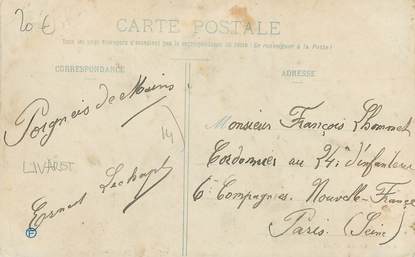 20 €
CARTE POSTALE
Tous les pays étrangers n'acceptent pas la correspondance au recto. (Se renseigner à la Poste)
CORRESPONDANCE
ADRESSE
Poignées de Mains
14
LIVAROT
Ernest
Monsieur François Lhommet
Cordonnier au 24e d'infanterie
6e Compagnie. Nouvelle-France
Paris (Seine)